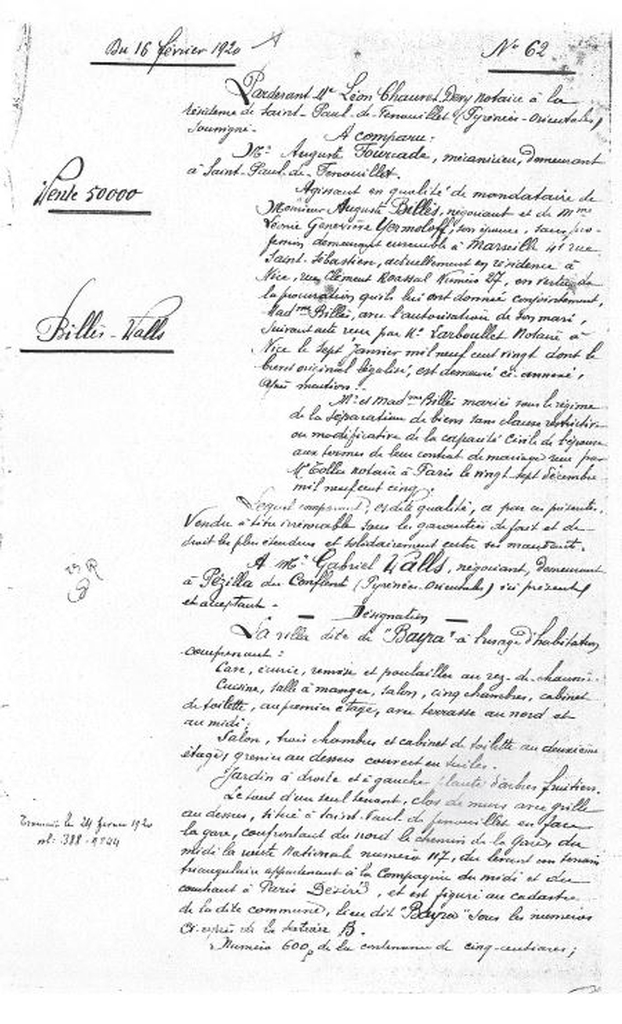 Du 16 février 1920
N° 62
Pardevant Me Léon Chauvet Dery notaire à la
résidence de Saint-Paul-de-Fenouillet (Pyrénées-Orientales)
soussigné.
A comparu:
Mr Auguste Fourcade, mécanicien, demeurant
à Saint-Paul-de-Fenouillet.
Vente 50000
Agissant en qualité de mandataire de
Monsieur Auguste Billès, négociant et de Mme
Geneviève Yermoloff, son épouse, sans pro-
fession, demeurant ensemble à Marseille 41 rue
Saint-Sébastien, actuellement en résidence à
Nice, rue Clément Roassal Numéro 27, en vertu de
la procuration qu'ils lui ont donnée conjointement,
Madme Billès, avec l'autorisation de son mari,
suivant acte reçu par Me Larboullet Notaire à
Billès-Valls
Nice le sept Janvier mil neuf cent vingt dont le
brevet original légalisé, est demeuré ci-annexé,
après mention.
Mr et Madme Billès mariés sous le régime
de la séparation de biens sans clause restrictive
ou modificative de la capacité Civile de l'épouse
aux termes de leur contrat de mariage reçu par
Me Tollu notaire à Paris le vingt-sept décembre
mil neuf cent cinq.
Lequel comparant, es-dite qualité, a par ces présentes.
Vendu à titre irrévocable sous les garanties de fait et de
droit les plus étendues et solidairement entre ses mandants.
A Mr Gabriel Valls, négociant, demeurant
à Pézilla de Conflent (Pyrénées-Orientales) ici présent
et acceptant.
Désignation
La villa dite de "Bayra" à l'usage d'habitation
comprenant:
Cave, écurie, remise et poulailler au rez-de-chaussée.
Cuisine, salle à manger, salon, cinq chambres, cabinet
de toilette, au premier étage, avec terrasse au nord et
au midi;
Salon, trois chambres et cabinet de toilette au deuxième
étage, grenier au dessus couvert en tuiles.
Jardin à droite et à gauche planté d'arbres fruitiers.
Le tout d'un seul tenant, clos de murs avec grille
au dessus, situé à Saint-Paul-de-Fenouillet en face
la gare, confrontant du nord le chemin de la Gare, du
midi la route Nationale numéro 117, du levant un terrain
triangulaire appartenant à la Compagnie du midi et du
couchant à Paris Désiré, et est figuré au cadastre
de la dite commune, lieu dit "Bayra" sous les numéros
ci-après de la section B.
Numéro 600p de la contenance de cinq centiares;
Transcrit le 24 février 1920
vol: 388